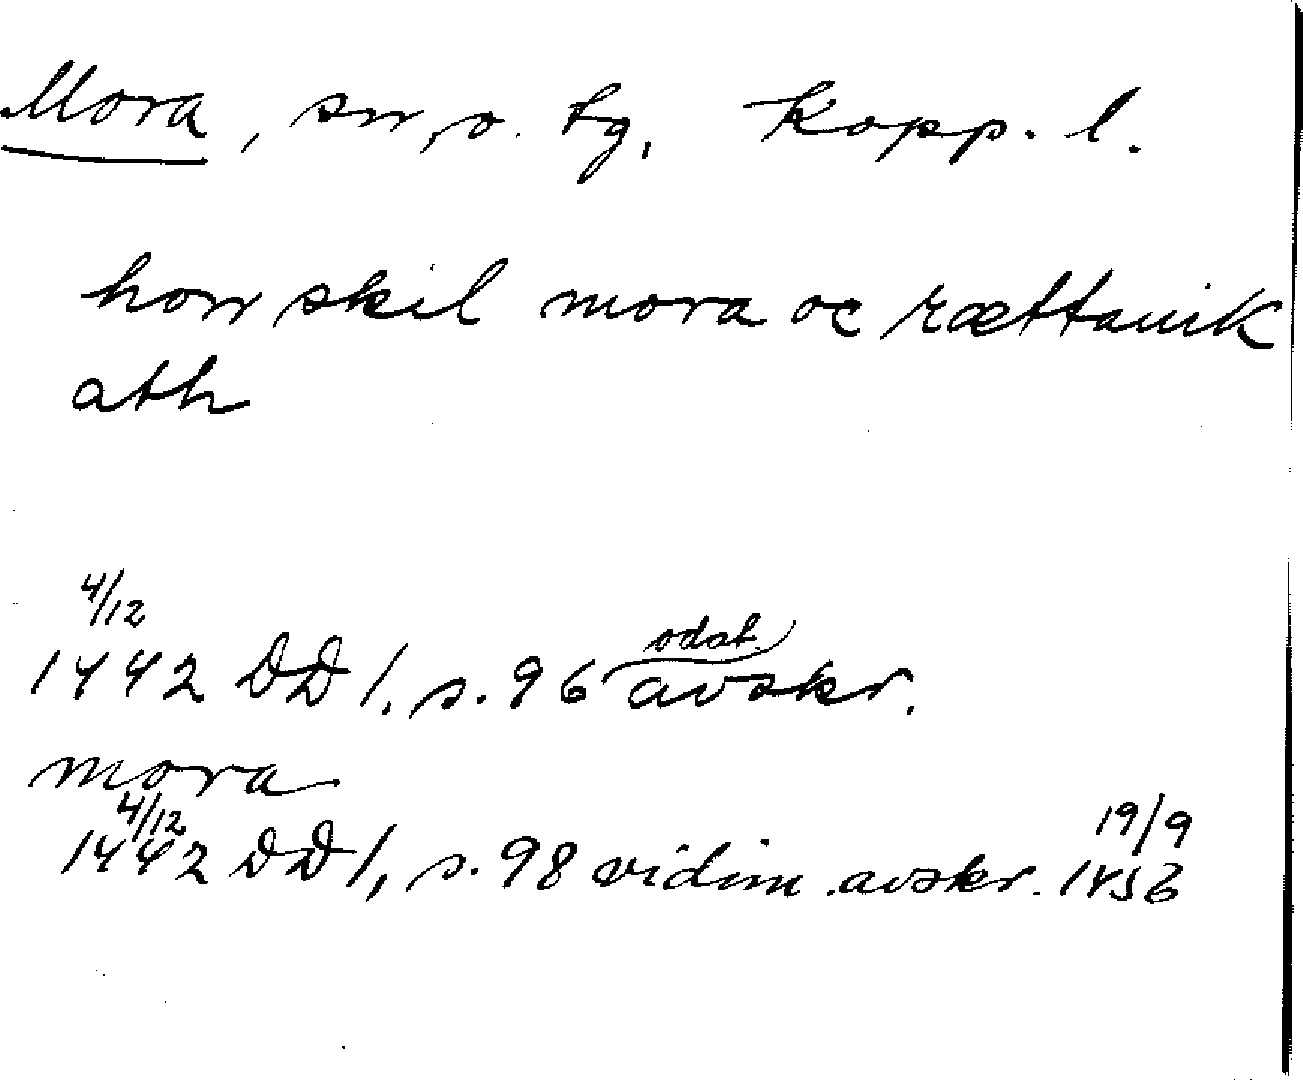 Mora, sn, o. tg, Kopp. l.
horr skil mora oc rættauik
ath
4/12
1442 DD 1, s. 96 odat. avskr.
mora
4/12
1442 DD 1, s. 98 vidim. avskr. 19/9 1456